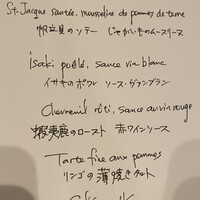 St. Jacque sautée, mousseline de pommes de terre
帆立貝のソテー じゃがいものムースリーヌ
Isaki poêlé, sauce vin blanc
イサキのポワレ ソース・ヴァンブラン
Chevreuil rôti, sauce au vin rouge
蝦夷鹿のロースト 赤ワインソース
Tarte fine aux pommes
リンゴの薄焼きタルト